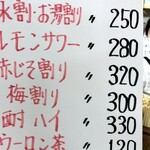 水割・お湯割り 〃 250
レモンサワー 〃 280
赤じそ割り 〃 320
梅割り 〃 300
酎ハイ 〃 330
ウーロン茶 〃 120